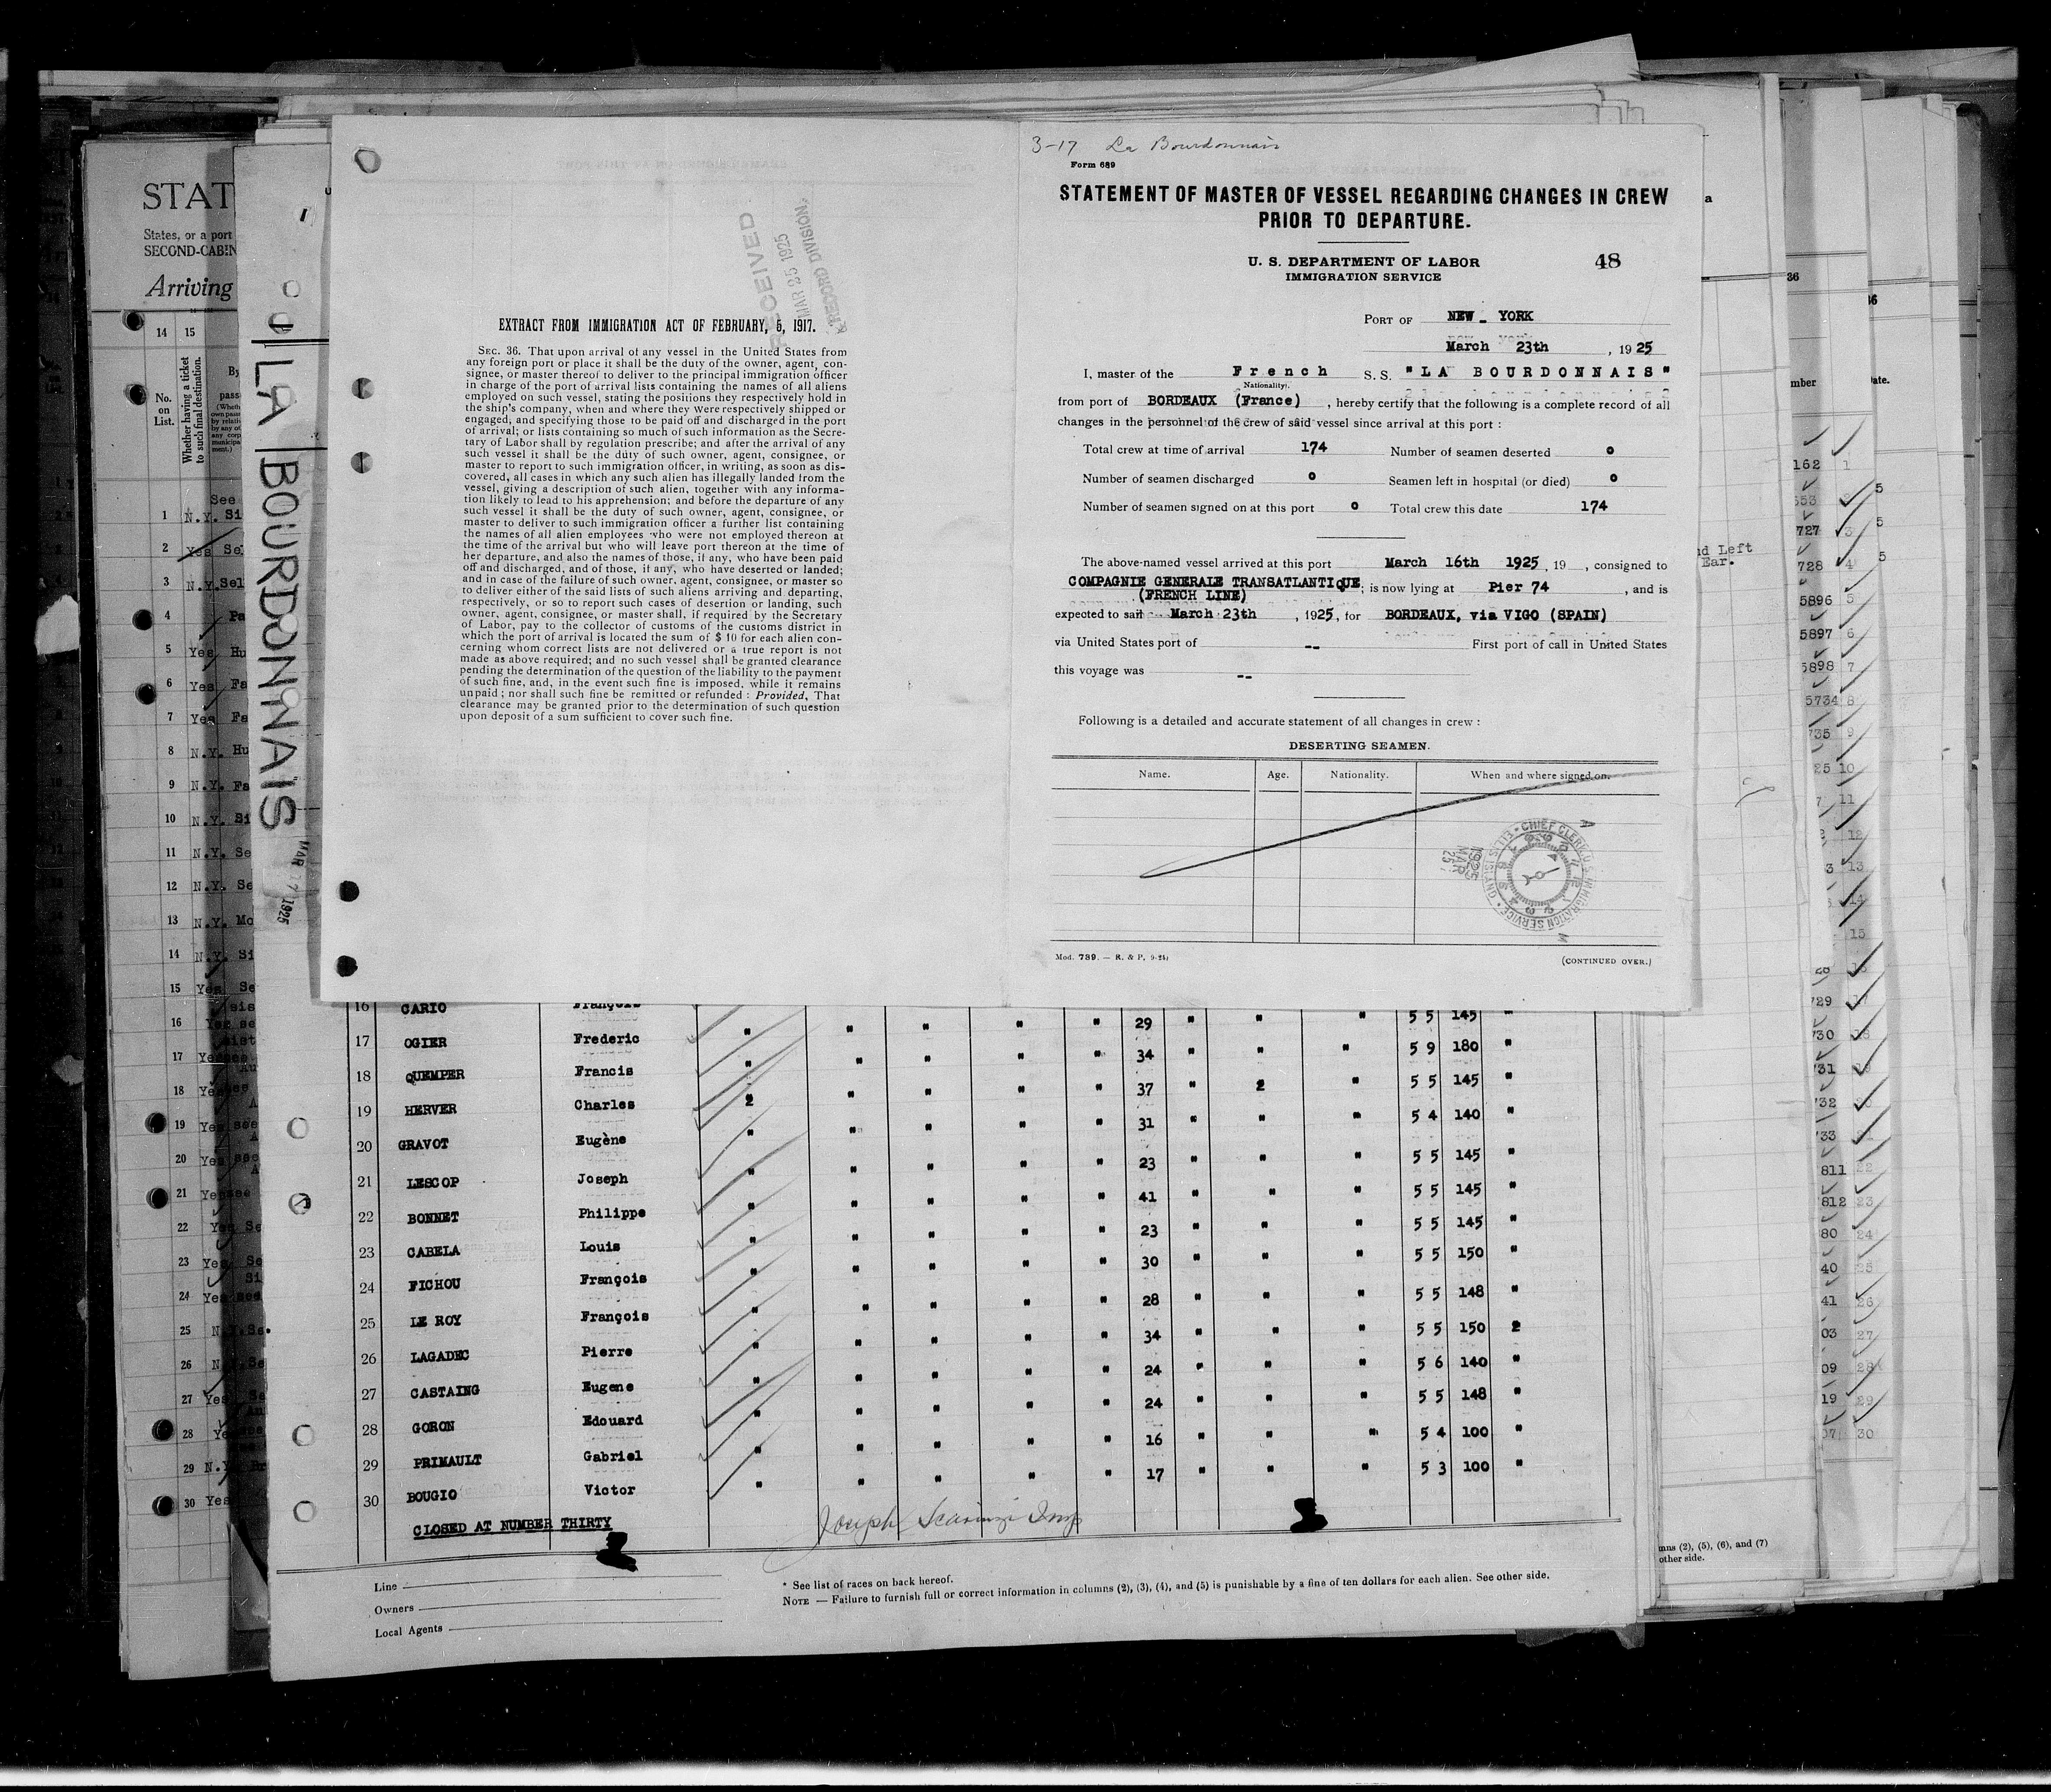 3-17 La Bourdonnais
Form 689
STATEMENT OF MASTER OF VESSEL REGARDING CHANGES IN CREW
PRIOR TO DEPARTURE.
U. S. DEPARTMENT OF LABOR
IMMIGRATION SERVICE
48
PORT OF NEW - YORK
March 23th , 1925
I, master of the French S. S. "LA BOURDONNAIS"
(Nationality).
from port of BORDEAUX (France) , hereby certify that the following is a complete record of all
changes in the personnel of the crew of said vessel since arrival at this port :
Total crew at time of arrival 174 Number of seamen deserted o
Number of seamen discharged o Seamen left in hospital (or died) o
Number of seamen signed on at this port o Total crew this date 174
The above-named vessel arrived at this port March 16th 1925 , 19 , consigned to
COMPAGNIE GENERALE TRANSATLANTIQUE; is now lying at Pier 74 , and is
(FRENCH LINE)
expected to sail March 23th , 1925, for BORDEAUX, via VIGO (SPAIN)
via United States port of -- First port of call in United States
this voyage was --
Following is a detailed and accurate statement of all changes in crew :
DESERTING SEAMEN.
Name. Age. Nationality. When and where signed on.
CHIEF CLERK U.S. IMMIGRATION SERVICE ELLIS ISLAND
1925 MAR 25
Mod. 789. — R. & P. 9-24
(CONTINUED OVER.)
RECEIVED
MAR 25 1925
RECORD DIVISION
EXTRACT FROM IMMIGRATION ACT OF FEBRUARY, 5, 1917.
SEC. 36. That upon arrival of any vessel in the United States from
any foreign port or place it shall be the duty of the owner, agent, con-
signee, or master thereof to deliver to the principal immigration officer
in charge of the port of arrival lists containing the names of all aliens
employed on such vessel, stating the positions they respectively hold in
the ship's company, when and where they were respectively shipped or
engaged, and specifying those to be paid off and discharged in the port
of arrival; or lists containing so much of such information as the Secre-
tary of Labor shall by regulation prescribe; and after the arrival of any
such vessel it shall be the duty of such owner, agent, consignee, or
master to report to such immigration officer, in writing, as soon as dis-
covered, all cases in which any such alien has illegally landed from the
vessel, giving a description of such alien, together with any informa-
tion likely to lead to his apprehension; and before the departure of any
such vessel it shall be the duty of such owner, agent, consignee, or
master to deliver to such immigration officer a further list containing
the names of all alien employees who were not employed thereon at
the time of the arrival but who will leave port thereon at the time of
her departure, and also the names of those, if any, who have been paid
off and discharged, and of those, if any, who have deserted or landed;
and in case of the failure of such owner, agent, consignee, or master so
to deliver either of the said lists of such aliens arriving and departing,
respectively, or so to report such cases of desertion or landing, such
owner, agent, consignee, or master shall, if required by the Secretary
of Labor, pay to the collector of customs of the customs district in
which the port of arrival is located the sum of $ 10 for each alien con-
cerning whom correct lists are not delivered or a true report is not
made as above required; and no such vessel shall be granted clearance
pending the determination of the question of the liability to the payment
of such fine, and, in the event such fine is imposed, while it remains
unpaid ; nor shall such fine be remitted or refunded : Provided, That
clearance may be granted prior to the determination of such question
upon deposit of a sum sufficient to cover such fine.
LA BOURDONNAIS
MAR 17 1925
16 CARIO François " " " " " 29 " " " 5 5 145 "
17 OGIER Frederic " " " " " 34 " " " 5 9 180 "
18 QUEMPER Francis " " " " " 37 " 2 " 5 5 145 "
19 HERVER Charles 2 " " " " 31 " " " 5 4 140 "
20 GRAVOT Eugène " " " " " 23 " " " 5 5 145 "
21 LESCOP Joseph " " " " " 41 " " " 5 5 145 "
22 BONNET Philippe " " " " " 23 " " " 5 5 145 "
23 CABELA Louis " " " " " 30 " " " 5 5 150 "
24 FICHOU François " " " " " 28 " " " 5 5 148 "
25 LE ROY François " " " " " 34 " " " 5 5 150 2
26 LAGADEC Pierre " " " " " 24 " " " 5 6 140 "
27 CASTAING Eugene " " " " " 24 " " " 5 5 148 "
28 GORON Edouard " " " " " 16 " " " 5 4 100 "
29 PRIMAULT Gabriel " " " " " 17 " " " 5 3 100 "
30 BOUGIO Victor
CLOSED AT NUMBER THIRTY
Joseph
Line
Owners
Local Agents
* See list of races on back hereof.
NOTE — Failure to furnish full or correct information in columns (2), (3), (4), and (5) is punishable by a fine of ten dollars for each alien. See other side.
STAT
States, or a port
SECOND-CABIN
Arriving
14 15
No. on List.
Whether having a ticket to such final destination.
nd Left
Ear.
mns (2), (5), (6), and (7)
other side.